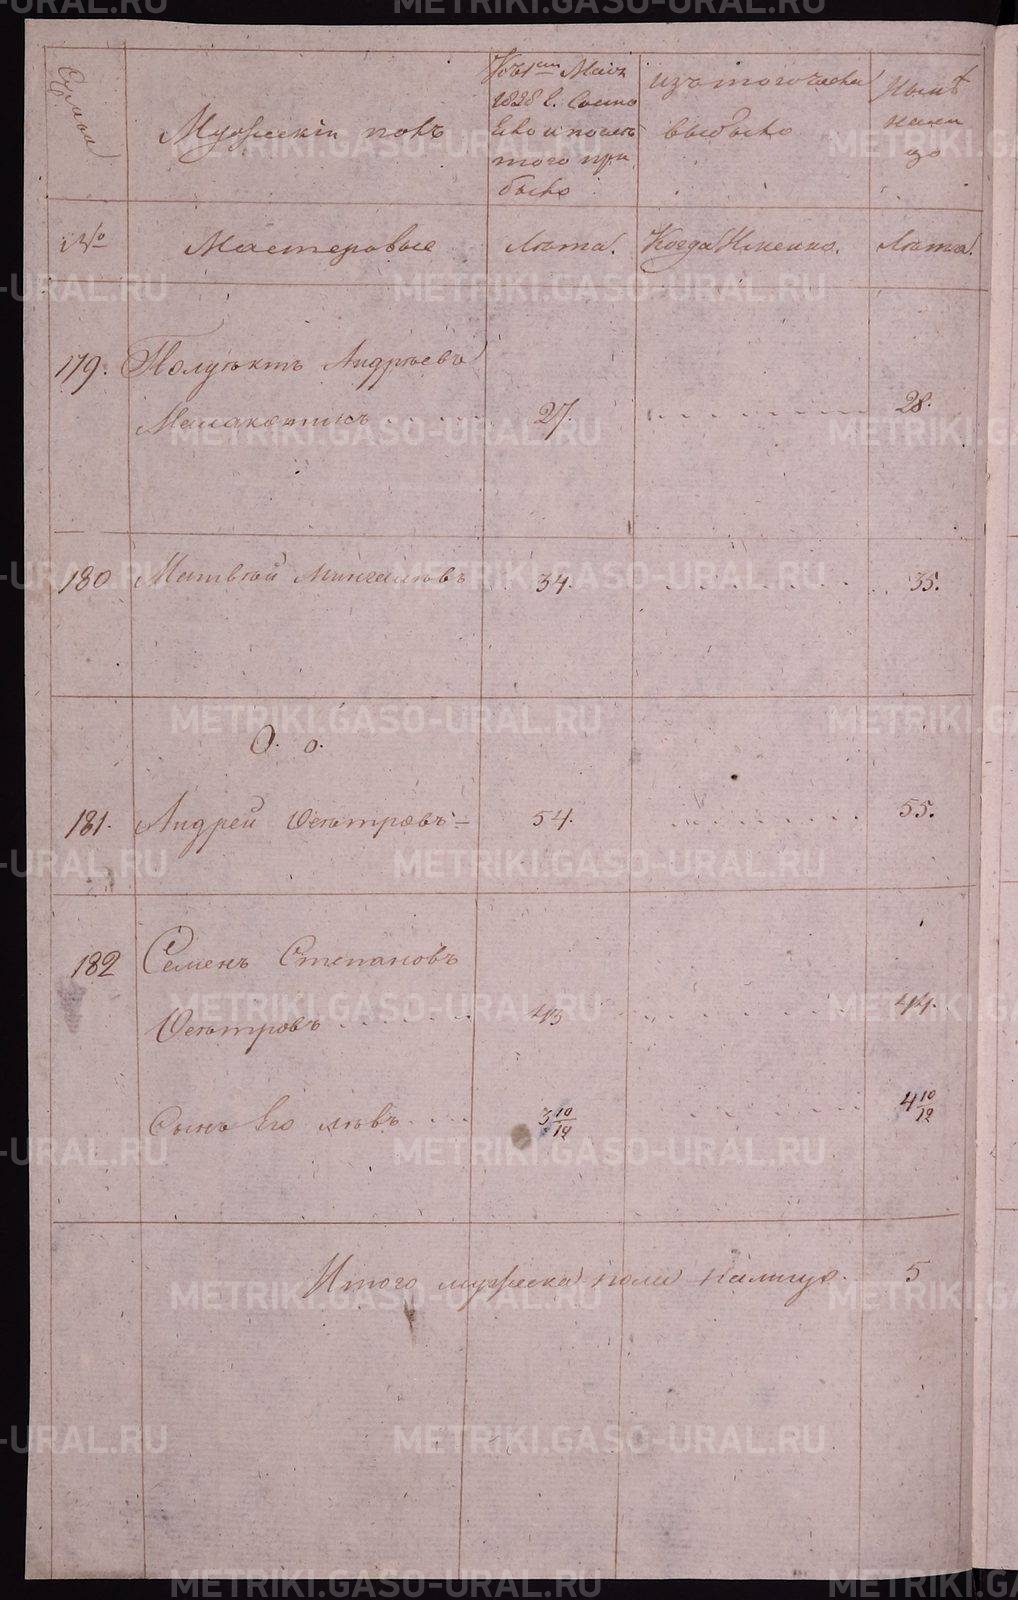 Семьи
Мужескiй полъ
Къ 1му Маiя
1828 г. Состо
яло и после
того при
было
изъ того числа
выбыло
Нынѣ
нали
цо
№
Мастеровые
Лѣта.
Когда Именно.
Лѣта.
179. Полуэктъ Андрѣевъ
27. 28.
180 Матвѣй 34. 35.
О. о.
181. Андрей Осѣтровъ 54. 55.
182 Семенъ Степановъ
Осѣтровъ 43 44.
Сынъ Его Левъ 3 10/12 4 10/12
Итого мужеска пола налицо. 5
METRIKI.GASO-URAL.RU